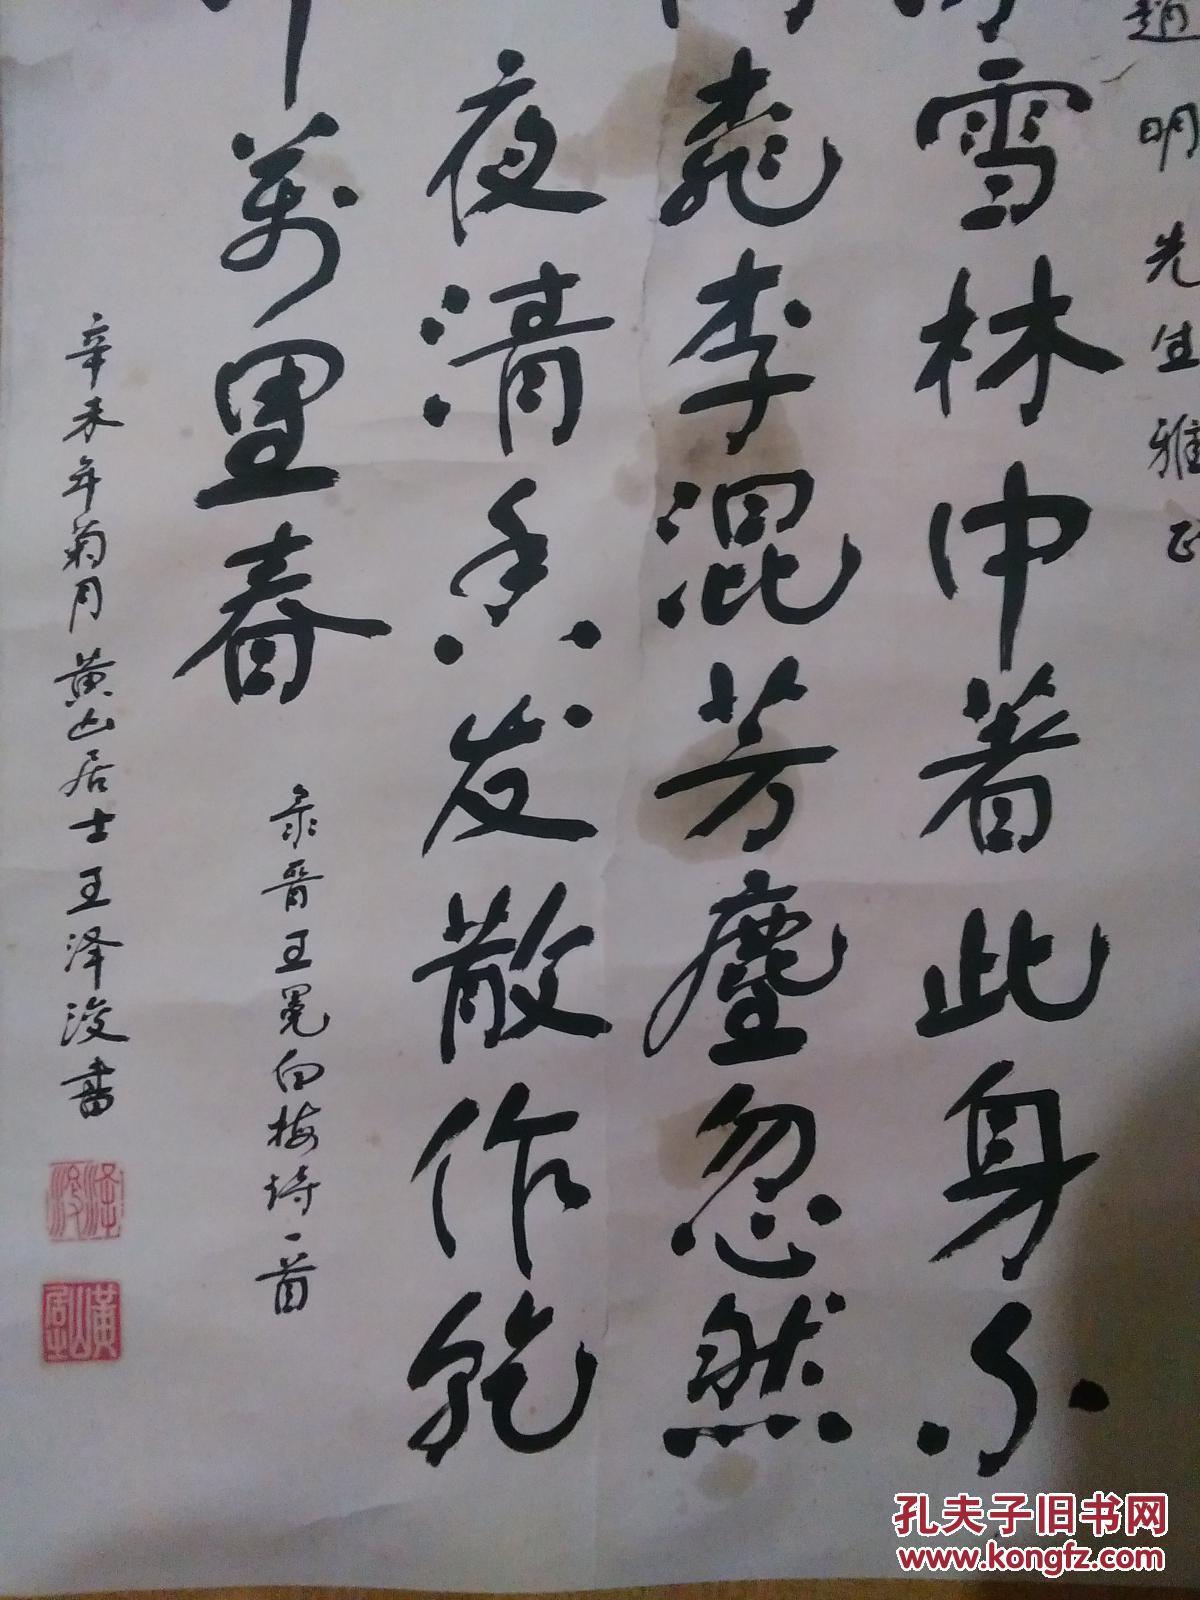 趙明先生雅正
雪林中著此身不
桃李混芳塵忽然
夜清香发散作乾
萬里春
录晋王冕白梅诗一首
辛未年菊月黄山居士王泽浚書
泽浚
黃山居士
孔夫子旧书网
www.kongfz.com